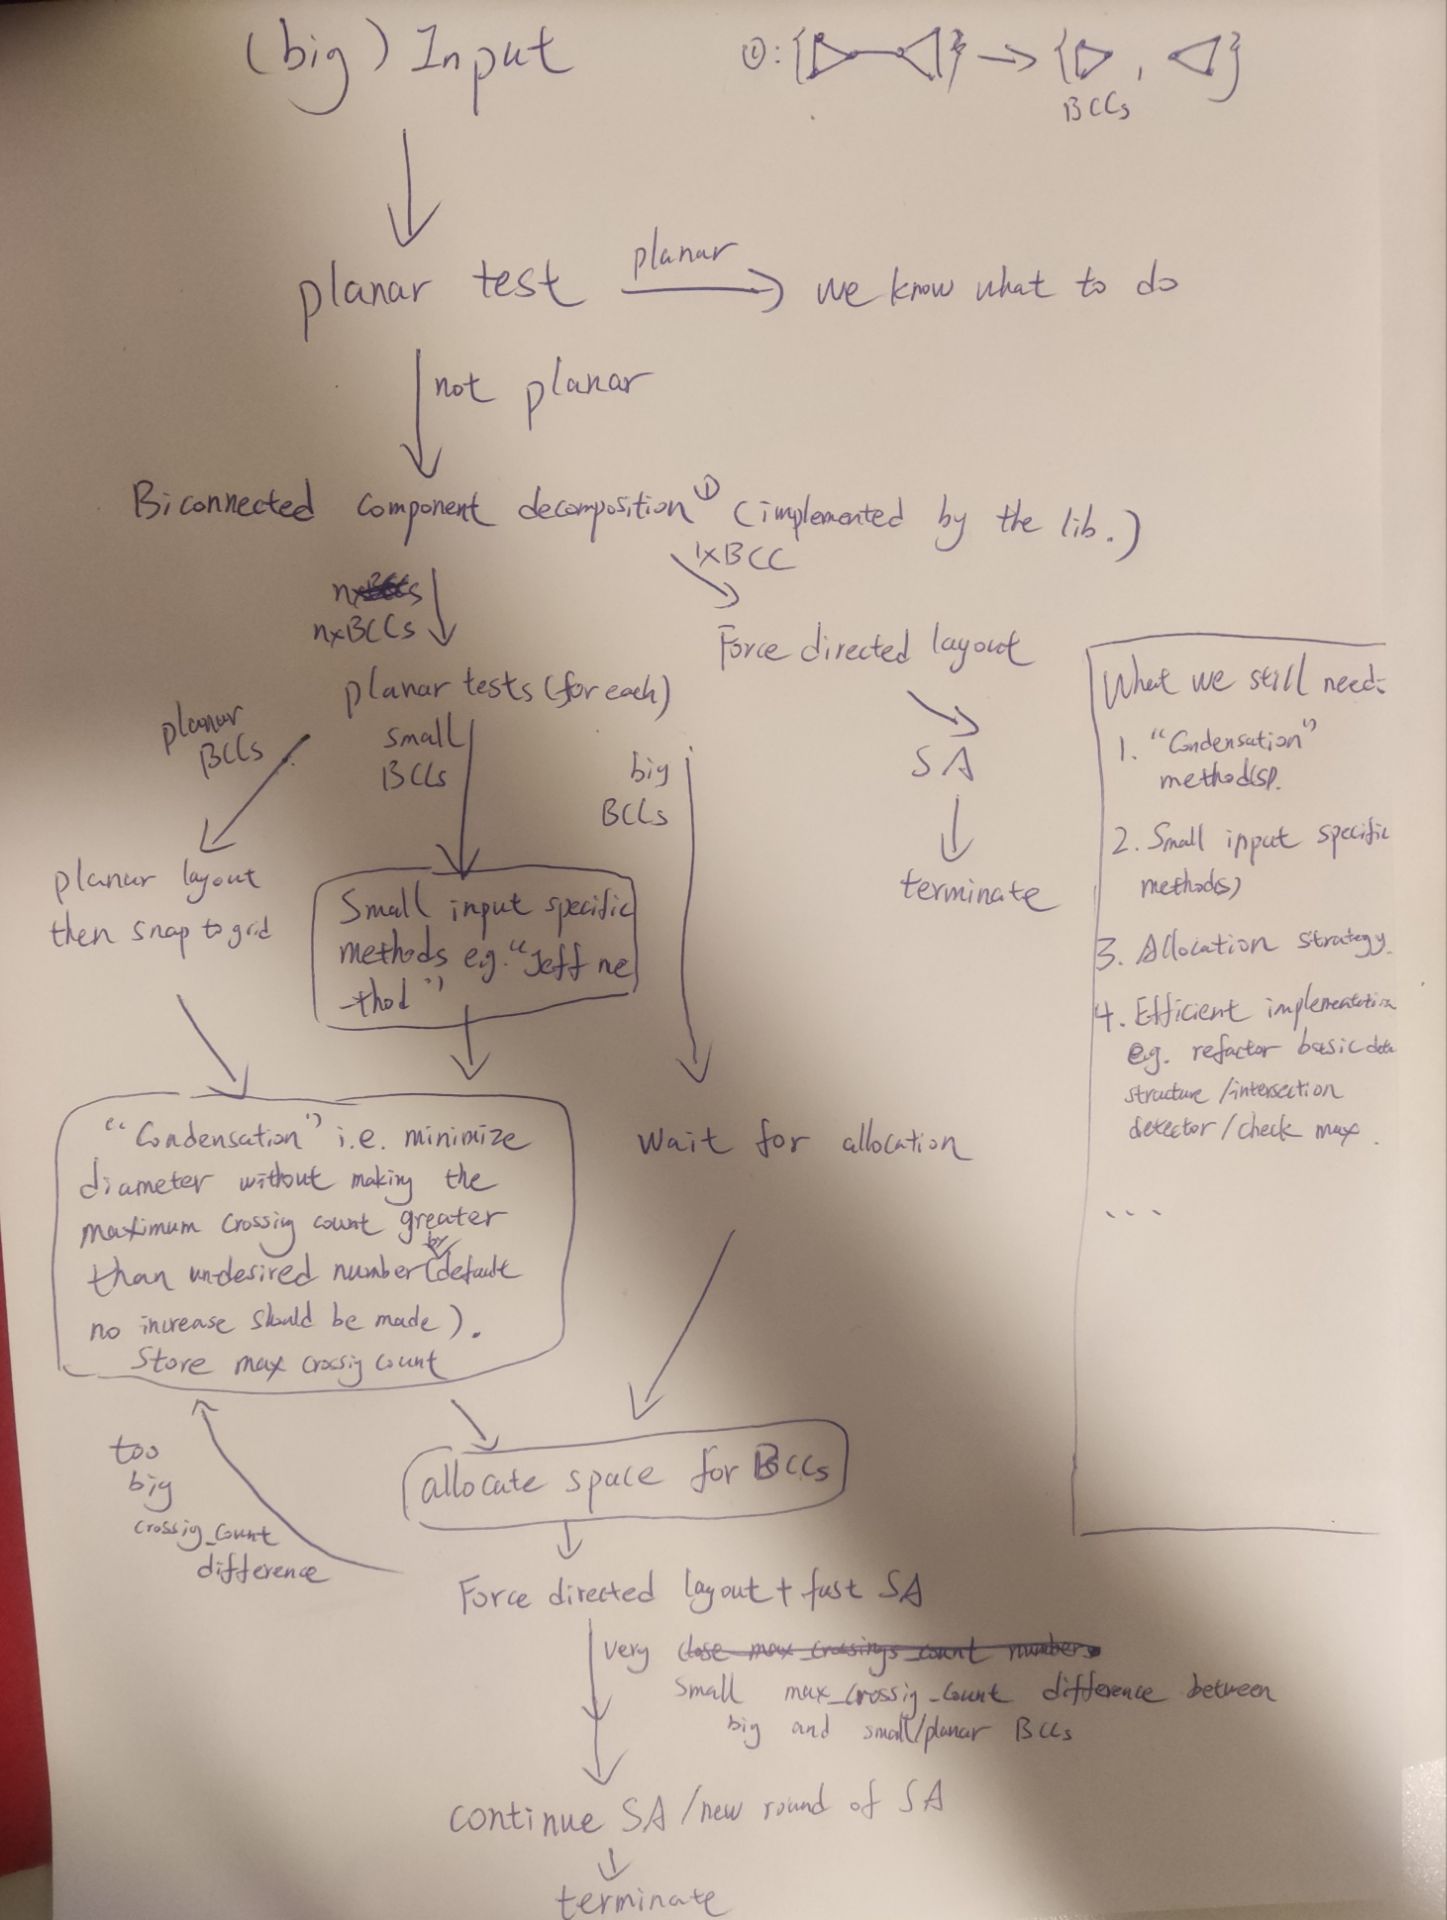 (big) Input
①: { } → { , }
BCCs
planar test
planar
we know what to do
not planar
Biconnected component decomposition ① (implemented by the lib.)
1xBCC
nxBCCs
Force directed layout
SA
terminate
planar tests (for each)
planar
BCCs
small
BCCs
big
BCCs
planar layout
then snap to grid
Small input specific
methods e.g. "Jeff me
-thod"
"Condensation" i.e. minimize
diameter without making the
maximum crossig count greater
than undesired number (by default
no increase should be made).
Store max crossig count
wait for allocation
too
big
crossig_count
difference
allocate space for BCCs
Force directed layout + fast SA
very close max_crossings_count numbers
small max_crossig_count difference between
big and small/planar BCCs
continue SA /new round of SA
terminate
What we still need:
1. "Condensation"
method(s).
2. Small input specific
method(s)
3. Allocation strategy.
4. Efficient implementation
e.g. refactor basic data
structure /intersection
detector / check max.
...